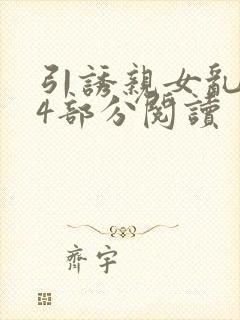 引誘親女亂
4部分閱讀
齊宇